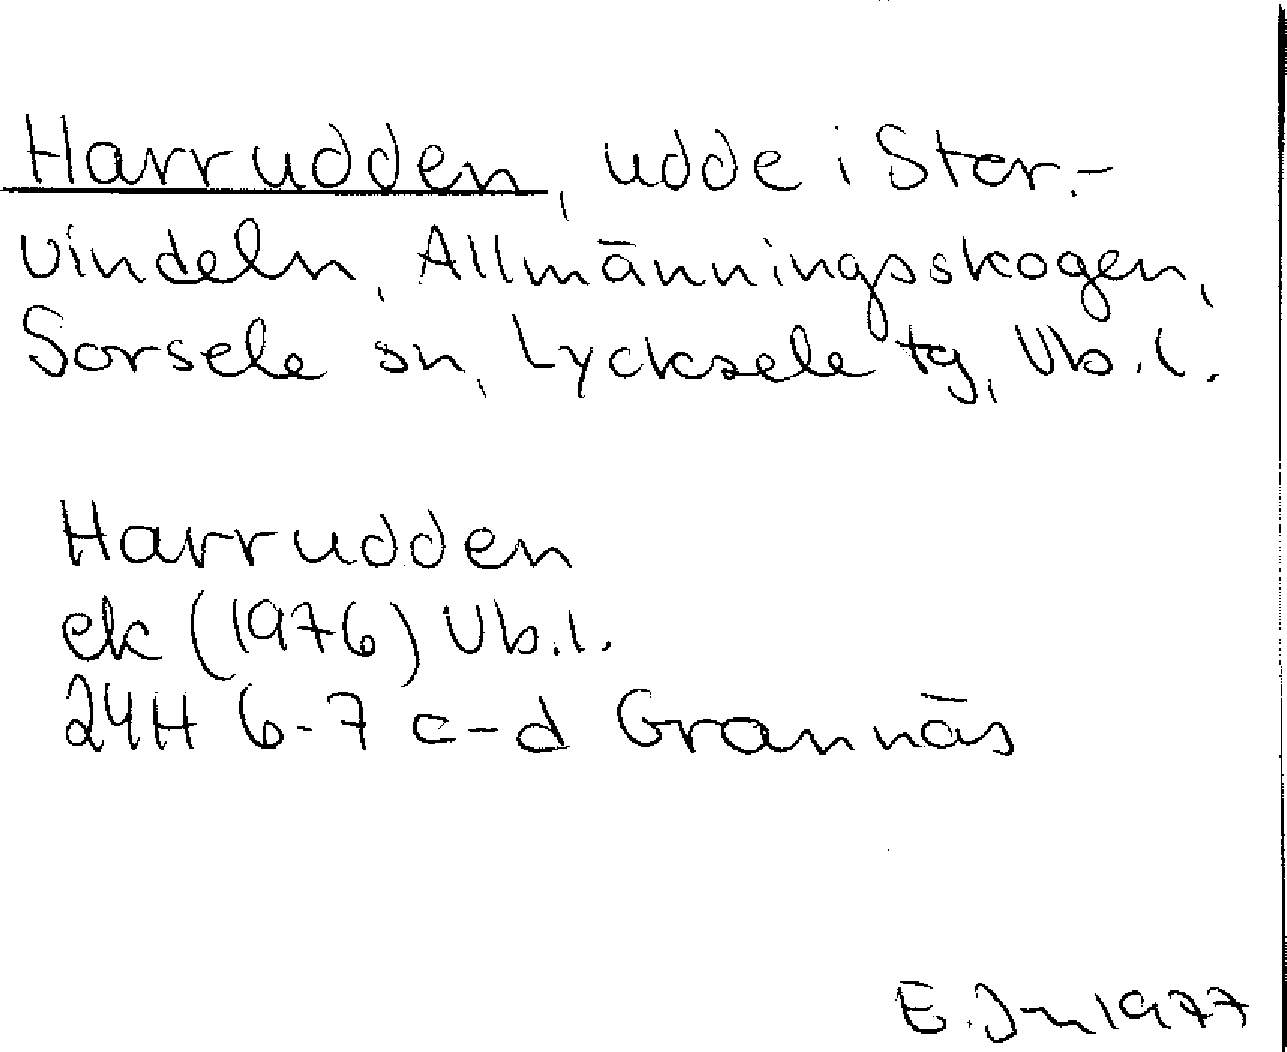 Harrudden, udde i Stor.-
vindeln, Allmänningsskogen,
Sorsele sn, Lycksele tg, Vb.l.
Harrudden
ek (1976) Vb.l.
24H 6-7 c-d Grannäs
E. Jn 1977